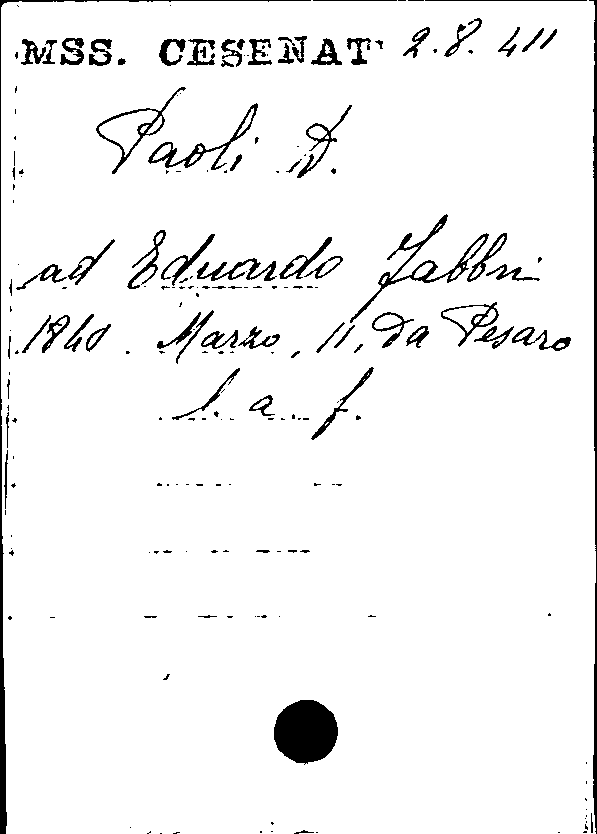 MSS. CESENAT 2.8.411
Paoli D.
ad Eduardo Fabbri
1840. Marzo, 11, da Pesaro
l. a. f.